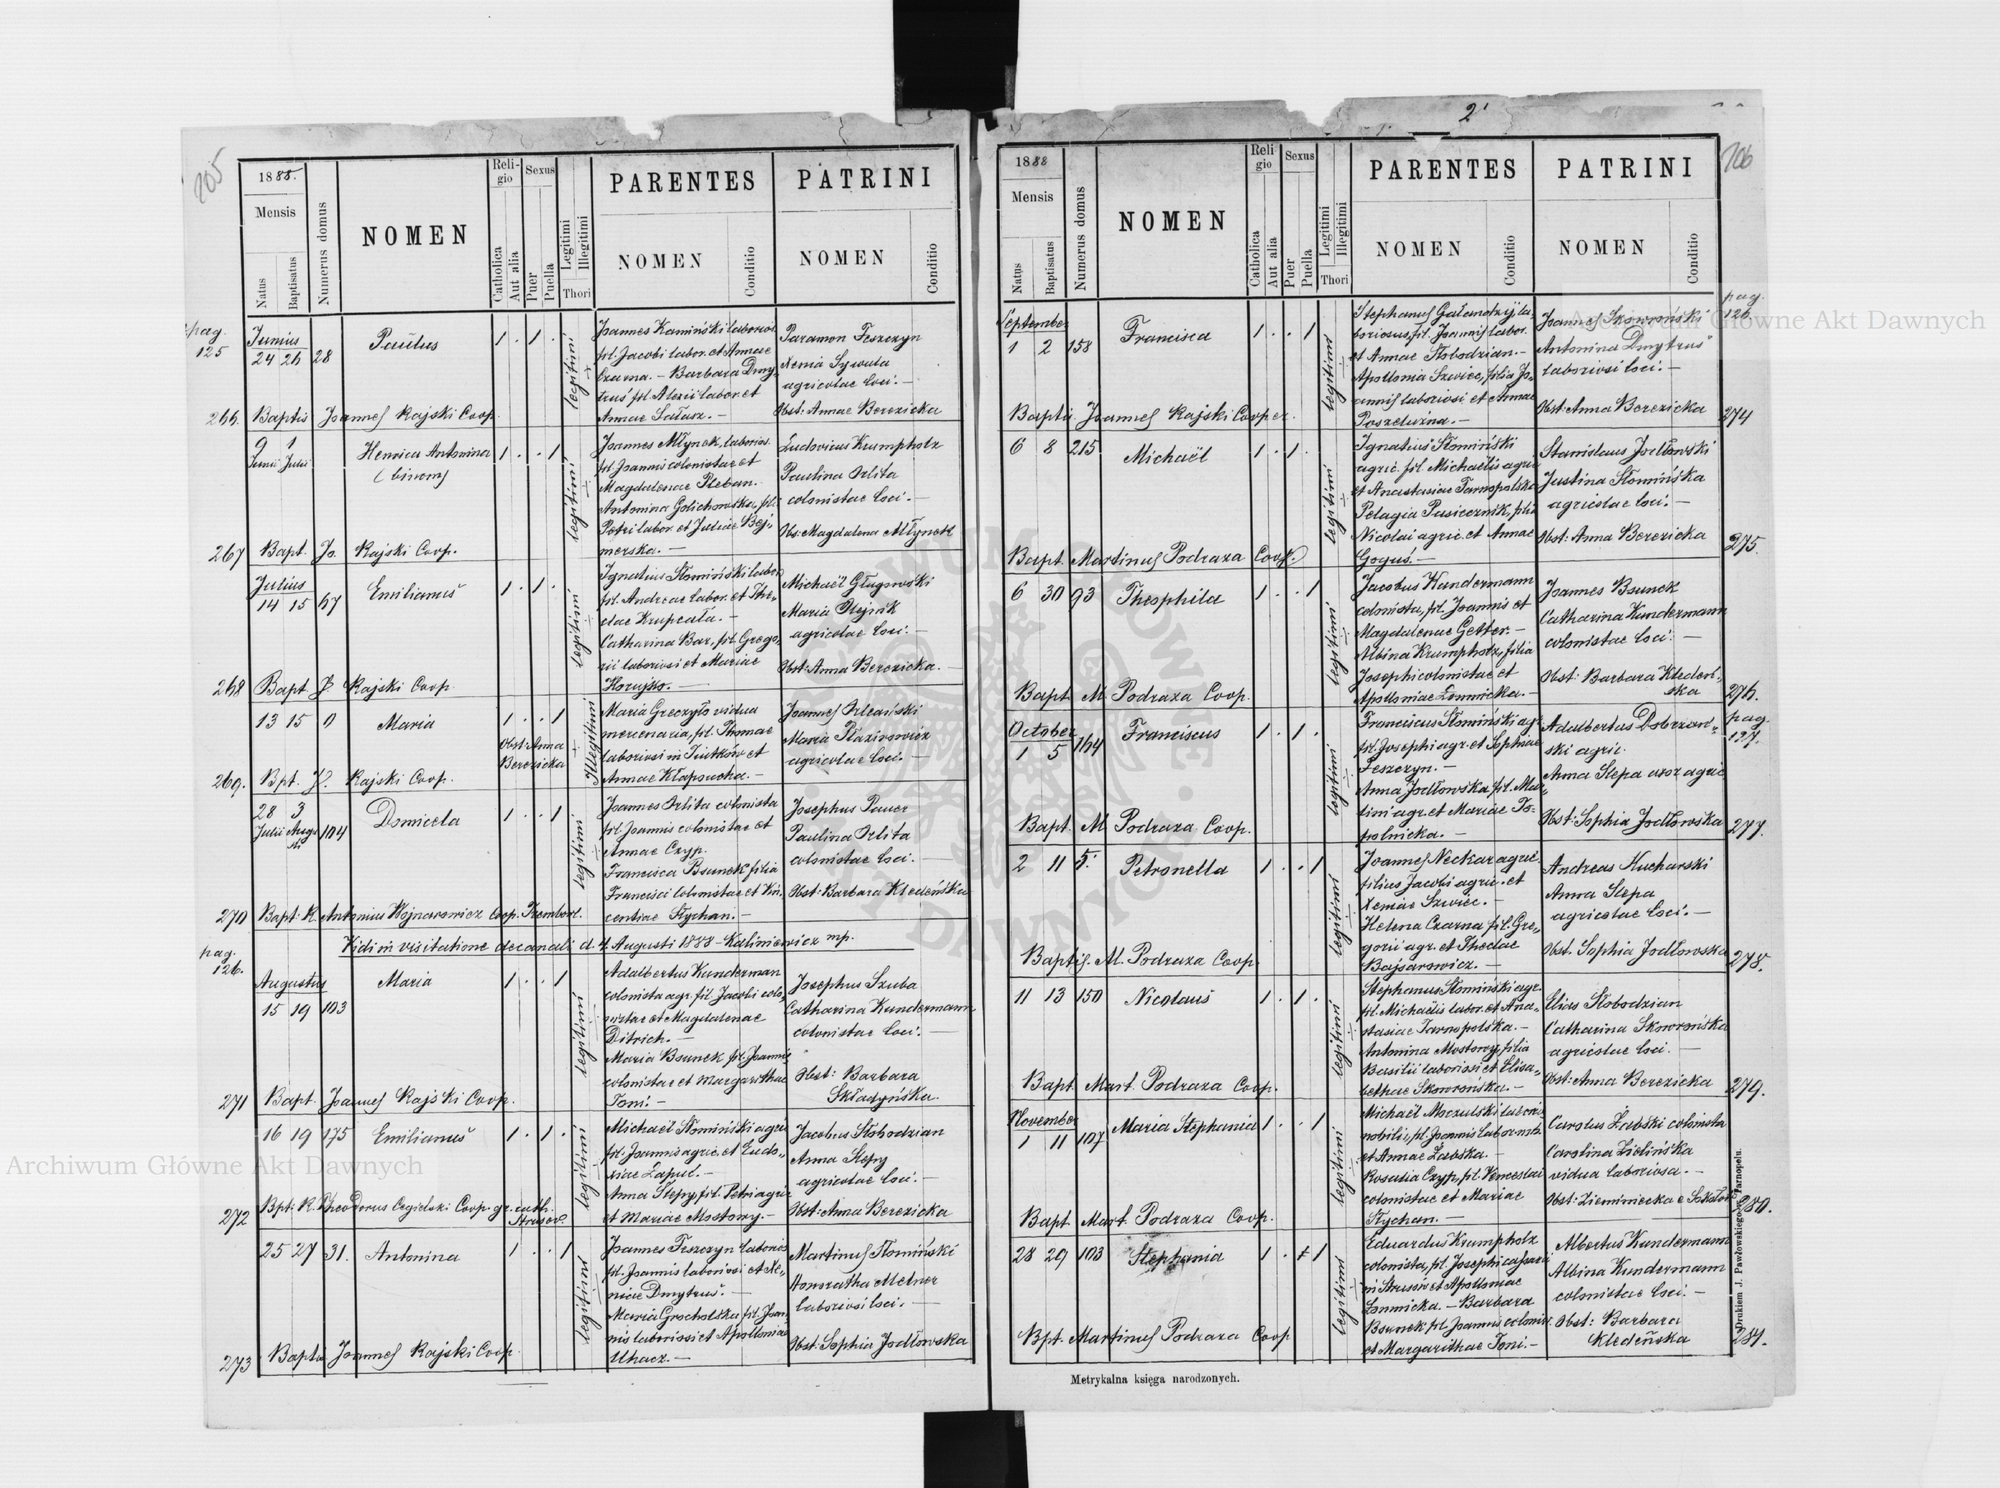 705
1888.
Mensis
Natus
Baptisatus
Numerus domus
NOMEN
Religio
Catholica
Aut alia
Sexus
Puer
Puella
Legitimi
Illegitimi
Thori
PARENTES
NOMEN
Conditio
PATRINI
NOMEN
Conditio
pag.
125
Junius
24 26 28
Paulus
1 . 1 .
legitimi
Joannes Kamiński laborios.
fil. Jacobi labor. et Annae
Czarna. – Barbara Dmy-
truś fil. Alexii labor. et
Annae Sałasz. –
Paramon Teszczyn
Xenia Sywula
agricolae loci. –
Obst: Annae Berezicka
266. Baptis Joannes Rajski Coop.
9 1
Junii Julii
Henrica Antonina
(binom)
1 . . 1
legitimi
Joannes Młynek, laborios.
fil. Joannis colonistae et
Magdalenae Pleban.
Antonina Golichowska, fil.
Petri labor. et Juliae Bej-
merska. –
Ludovicus Krumpholz
Paulina Orlita
colonistae loci. –
Obs: Magdalena Młynek
267 Bapt. Jo. Rajski Coop.
Julius
14 15 67
Emilianus
1 . 1 .
legitimi
Ignatius Słomiński labor.
fil. Andreae labor. et The-
clae Krupcała. –
Catharina Bar, fil. Grego-
rii laboriosi et Mariae
Horujko. –
Michaël Głagowski
Maria Olejnik
agricolae loci. –
Obst: Anna Berezicka. –
268 Bapt. J. Rajski Coop
13 15 9
Maria
1 . . 1
Obst: Anna
Berezicka
Illegitimi
Maria Greczyło vidua
mercenaria, fil. Thomae
laboriosi in Tiutków et
Annae Kłapoucha. –
Joannes Orleański
Maria Razirowicz
agricolae loci. –
269. Bpt. J. Rajski Coop.
28 3
Julii Augusti 104
Domicela
1 . . 1
legitimi
Joannes Orlita colonista
fil. Joannis colonistae et
Annae Czyp.
Francisca Bsunek filia
Francisci Colonistae et Vin-
centiae Stychan. –
Josephus Pauer
Paulina Orlita
colonistae loci. –
Obst: Barbara Kledeńska
270 Bapt: R. Antonius Wojnarowicz Coop. Trembowl.
Vidi in visitatione decanali d. 4 Augusti 1888 – Kaliniewicz mp.
pag.
126.
Augustus
15 19 103
Maria
1 . . 1
legitimi
Adalbertus Kunderman
colonista agr. fil. Jacobi colo-
nistae et Magdalenae
Ditrich. –
Maria Bsunek, fil. Joannis
colonistae et Margarithae
Toni. –
Josephus Szuba
Catharina Kundermann
colonistae loci. –
Obst: Barbara
Składyńska.
271 Bapt. Joannes Rajski Coop.
16 19 175
Emilianus
1 . 1 .
legitimi
Michaël Słomiński agric.
fil. Joannis agric. et Eudo-
xiae Łapuć. –
Anna Stepy, fil. Petri agric.
et Mariae Mostowy. –
Jacobus Słobodzian
Anna Stepy
agricolae loci. –
Obst: Anna Berezicka
272 Bpt: R. Theodorus Cegielski Coop. gr. cath. Strusov.
25 27 31.
Antonina
1 . . 1
legitimi
Joannes Teszczyn laborios.
fil. Joannis laboriosi et Xe-
niae Dmytruś. –
Maria Grocholska fil. Joan-
nis laboriosi et Apolloniae
Uhacz. –
Martinus Słomiński
Honoratha Melner
laboriosi loci. –
Obst: Sophia Jodłowska
273 Baptis Joannes Rajski Coop
2'
706
1888
Mensis
Natus
Baptisatus
Numerus domus
NOMEN
Religio
Catholica
Aut alia
Sexus
Puer
Puella
Legitimi
Illegitimi
Thori
PARENTES
NOMEN
Conditio
PATRINI
NOMEN
Conditio
pag.
126.
September
1 2 158
Francisca
1 . . 1
legitimi
Stephanus Gałandzij la-
boriosus, fil. Joannis labor.
et Annae Słobodzian. –
Apollonia Szwiec, filia Jo-
annis laboriosi et Annae
Poszeluzna. –
Joannes Skowroński
Antonina Dmytruś
laboriosi loci. –
Obst: Anna Berezicka
Baptis Joannes Rajski Cooper. 274
6 8 215
Michaël
1 . 1 .
legitimi
Ignatius Słomiński
agric. fil. Michaëlis agric.
et Anastasiae Tarnopolska
Pelagia Pasiecznik, filia
Nicolai agric. et Annae
Goguś. –
Stanislaus Jodłowski
Justina Słomińska
agricolae loci. –
Obst: Anna Berezicka
Bapt. Martinus Podraza Coop. 275.
6 30 93
Theophila
1 . . 1
legitimi
Jacobus Kundermann
colonista, fil. Joannis et
Magdalenae Getter. –
Albina Krumpholz, filia
Josephi colonistae et
Apolloniae Łomnicka. –
Joannes Bsunek
Catharina Kundermann
colonistae loci. –
Obst: Barbara Kledeń-
ska
Bapt M. Podraza Coop. 276.
pag.
127.
October
1 5 164
Franciscus
1 . 1 .
legitimi
Franciscus Słomiński agr.
fil. Josephi agr. et Sophiae
Teszczyn. –
Anna Jodłowska, fil. Mar-
tini agr. et Mariae To-
polnicka. –
Adalbertus Dobrzań-
ski agric.
Anna Stepa uxor agric.
Obst: Sophia Jodłowska
Bapt. M. Podraza Coop. 277.
2 11 5.
Petronella
1 . . 1
legitimi
Joannes Neckar agric.
filius Jacobi agric. et
Xeniae Szwiec. –
Helena Czarna, fil. Gre-
gorii agr. et Theclae
Bajsarowicz. –
Andreas Kucharski
Anna Stepa
agricolae loci. –
Obst. Sophia Jodłowska
Baptis. M. Podraza Coop. 278.
11 13 150
Nicolaus
1 . 1 .
legitimi
Stephanus Słomiński agr.
fil. Michaëlis labor. et Ana-
stasiae Tarnopolska. –
Antonina Mostowy, filia
Basilii laboriosi et Elisa-
bethae Skowrońska. –
Elias Słobodzian
Catharina Skowrońska
agricolae loci. –
Obst: Anna Berezicka
Bapt Mart. Podraza Coop. 279.
November
1 11 107
Maria Stephania
1 . . 1
legitimi
Michaël Moczulski labori.
nobilis, fil. Joannis labor. nob.
et Annae Żabska.
Rosalia Czyp, fil. Venceslai
colonistae et Mariae
Stychan. –
Carolus Żabski colonista
Carolina Zielińska
vidua laboriosa. –
Obst: Ziemniecka e Sokołów
Bapt Mart. Podraza Coop. 280.
28 29 103
Stephania
1 . 1
legitimi
Eduardus Krumpholz
colonista, fil. Josephi
in Strusów et Apolloniae
Łomnicka. – Barbara
Bsunek fil. Joannis colonist.
et Margarithae Toni. –
Albertus Kundermann
Albina Kundermann
colonistae loci. –
Obst: Barbara
Kledeńska
Bpt. Martinus Podraza Coop 281.
Metrykalna księga narodzonych.
Drukiem J. Pawłowskiego w Tarnopolu.
Archiwum Główne Akt Dawnych
Archiwum Główne Akt Dawnych
ARCHIWUM GŁÓWNE AKT DAWNYCH